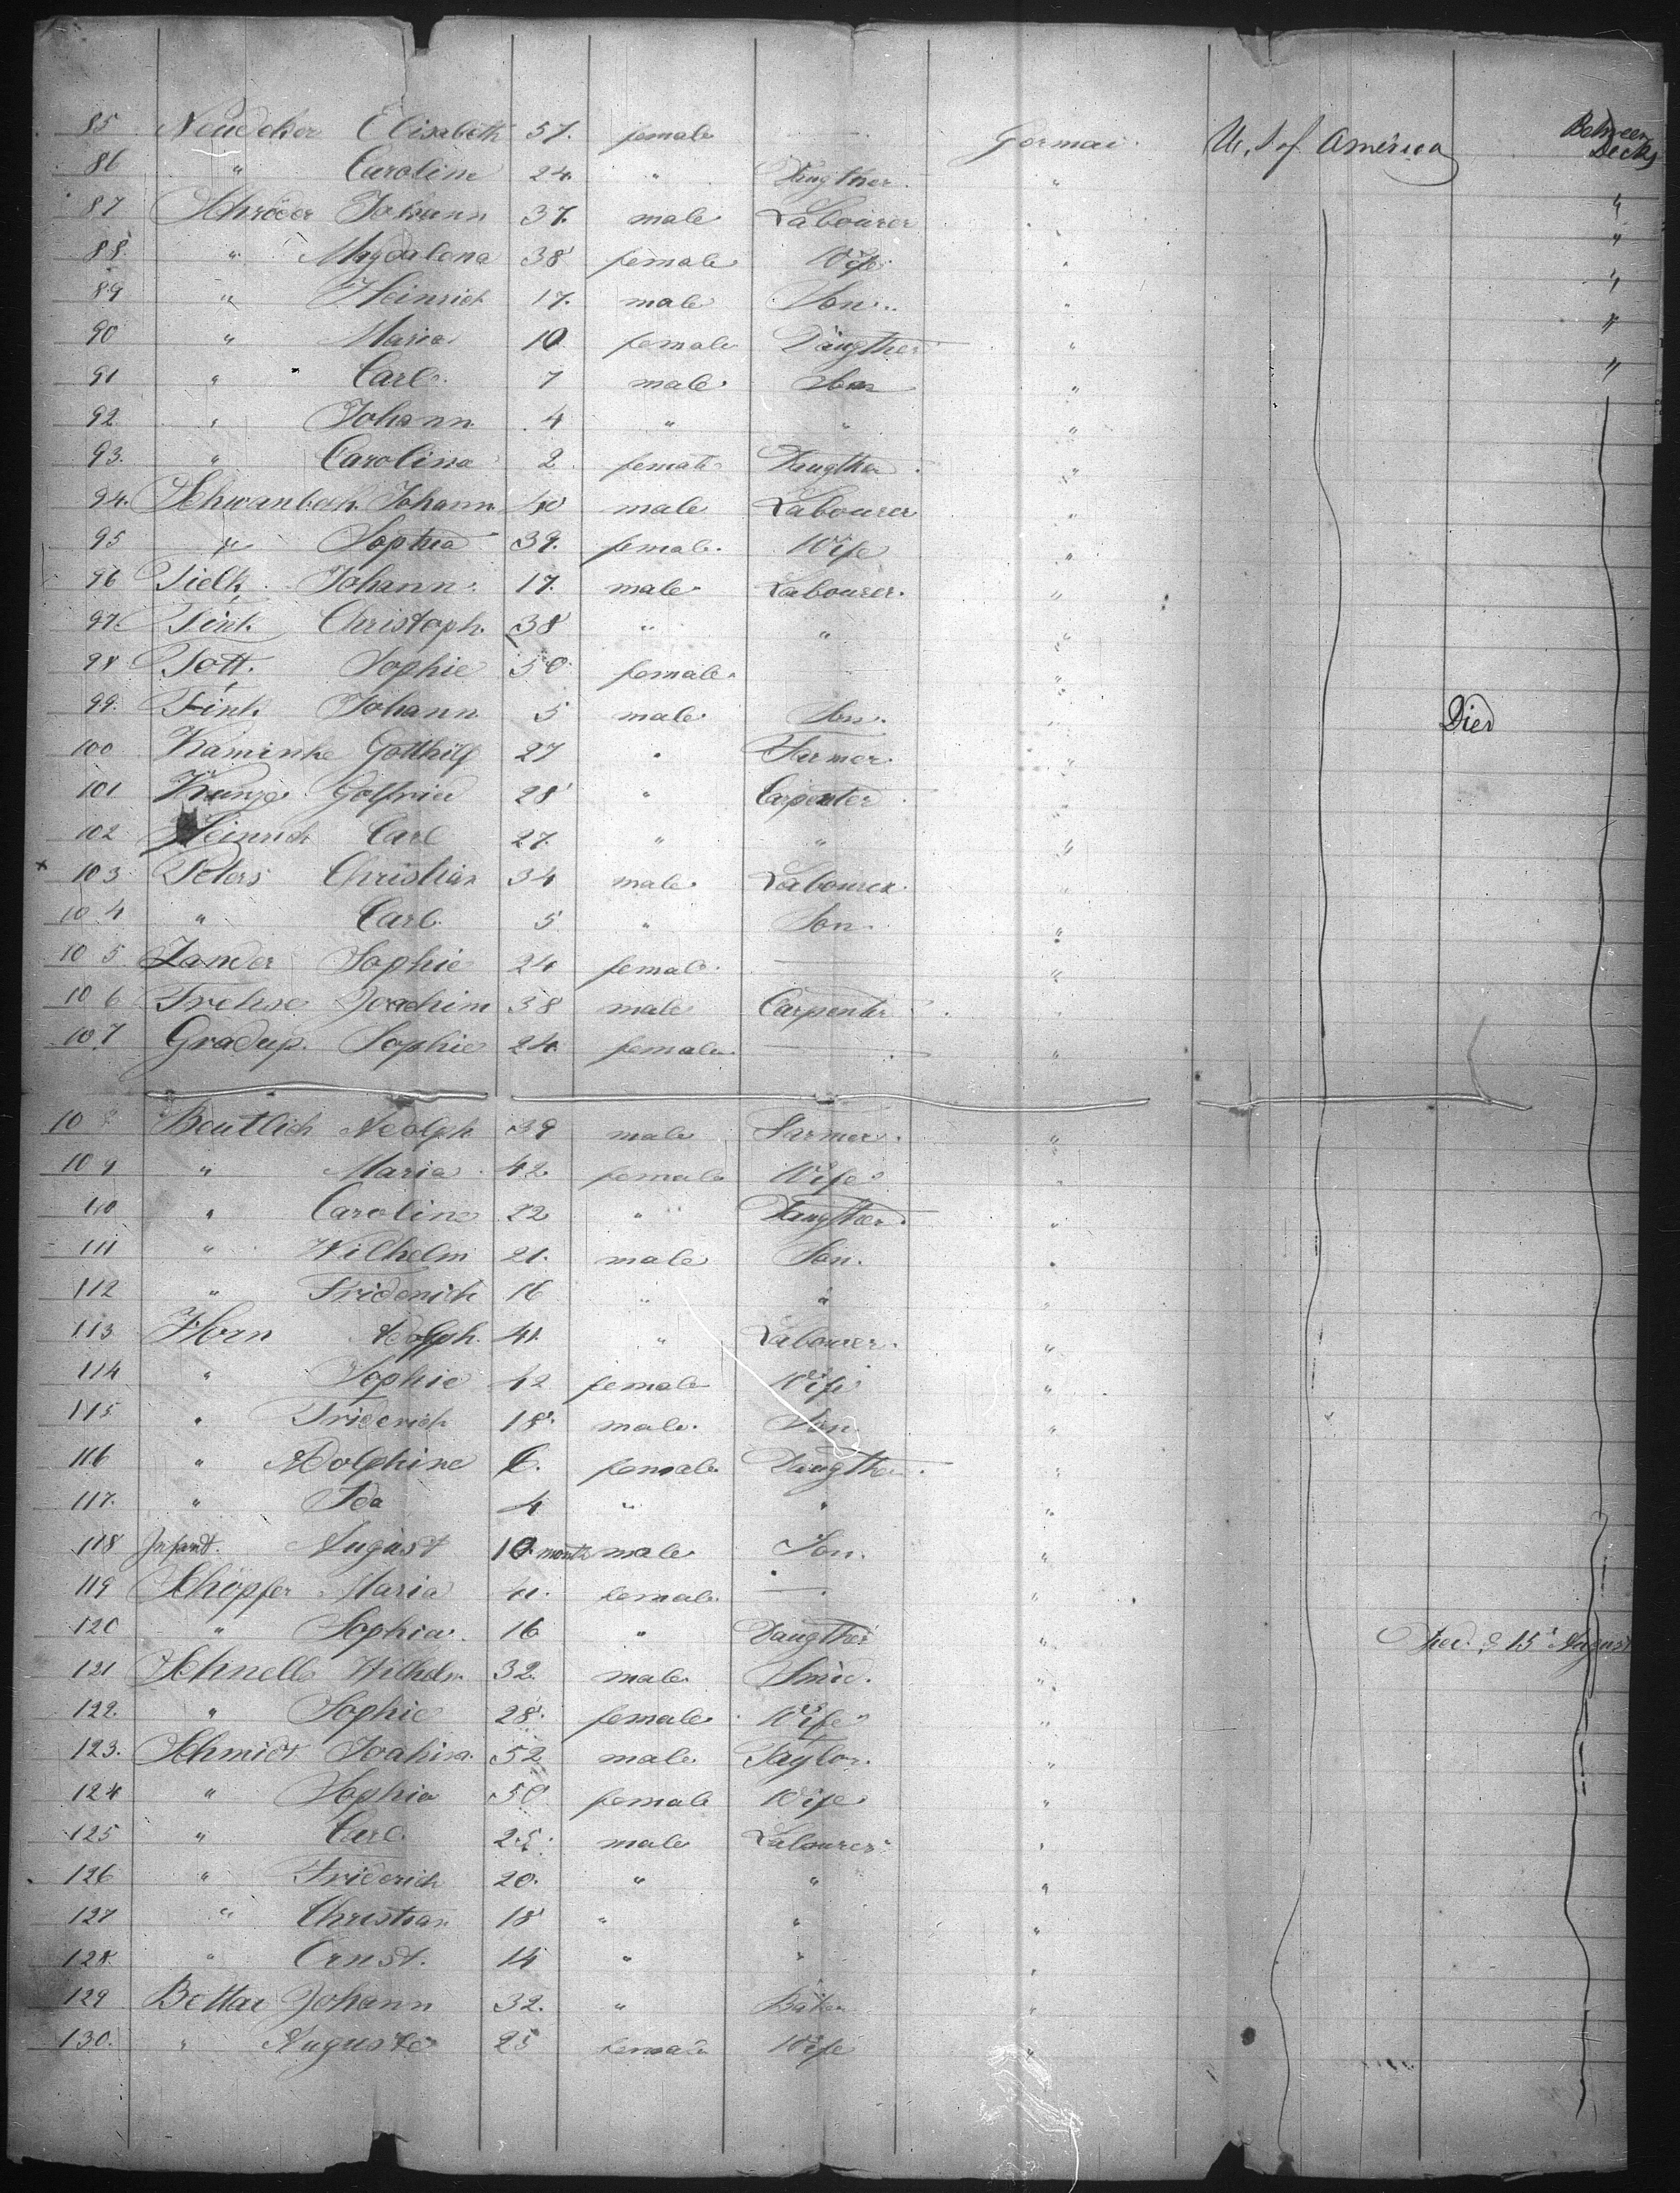 85 Neudeker Elisabeth 57. female — Germai. U. S of America Between Decks
86 " Caroline 24. " Daugther "
87 Schröder Johann 37. male Labourer " "
88. " Magdalena 38 female Wife " "
89 " Heinrich 17. male Son. " "
90 " Maria 10 female Daugther " "
91 " Carl 7 male Son " "
92 " Johann 4 " " "
93. " Carolina 2 female Daugther "
94. Schwanbeck Johann 40 male Labourer "
95 " Sophia 39. female Wife "
96 Tielk Johann 17. male Labourer. "
97. Tink Christoph. 38 " " "
98 Tott. Sophie 50 female "
99. Tink Johann 5 male Son. " Died
100 Kaminke Gotthilf 27 " Farmer. "
101 Kunze Golfried 28 " Carpenter "
102 Heinrich Carl 27. " " "
103 Peters Christian 34 male Labourer "
104 " Carl 5 " Son. "
105 Zander Sophie 24 female — "
106 Frehse Joachim 38 male Carpenter "
107 Gradup. Sophie 24 female — "
108 Beutlich Adolph 39 male Farmer. "
109 " Maria 42. female Wife "
110 " Caroline 22 " Daugther. "
111 " Wilhelm 21. male Son. "
112 " Friderich 16 " " "
113 Horn Adolph. 41. " Labourer. "
114 " Sophie 42 female Wife "
115 " Friderich 18. male. Son "
116 " Adolphine 6. female Daugther. "
117. " Ida 4 " " "
118 Infant. August 10. month male Son. "
119 Schöpfer Maria 41. female — "
120 " Sophia. 16 " Daugther " Died 15 August
121 Schnelle Wilhelm 32. male Smid. "
122. " Sophie 28. female Wife "
123. Schmidt Joahim. 52 male Taylor. "
124 " Sophia 50 female Wife "
125 " Carl 25. male Labourer "
126 " Friderich 20. " " "
127 " Christian 18 " " "
128. " Ernst. 14 " " "
129 Johann 32. " "
130. " Auguste 25 female Wife "